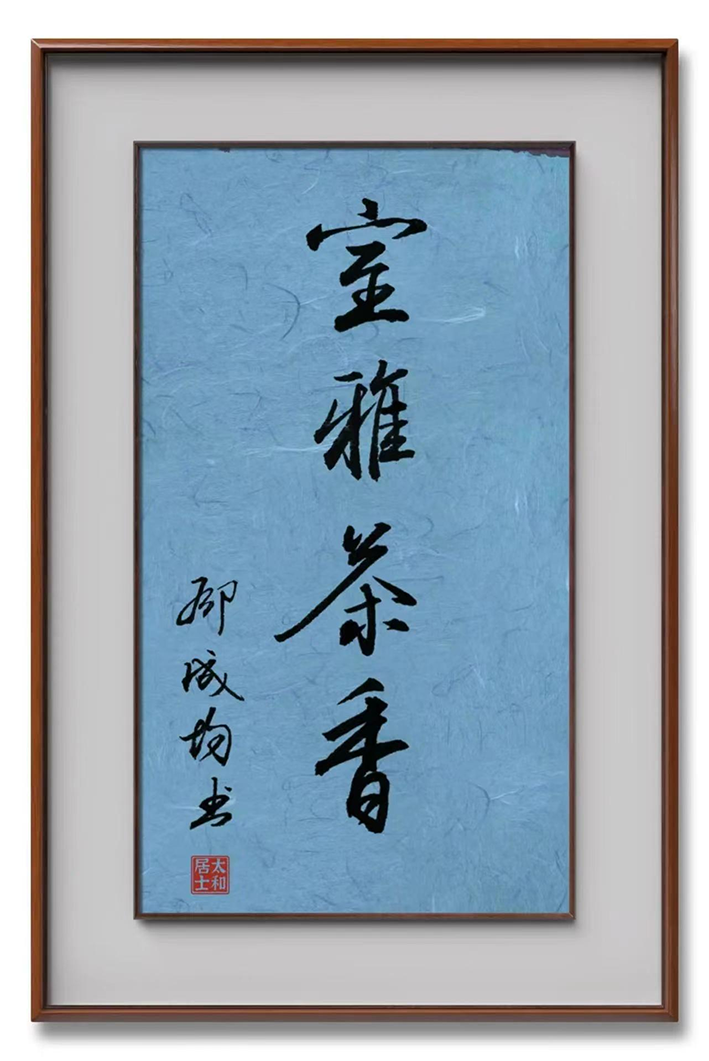 室雅茶香
邵成均书
太和居士